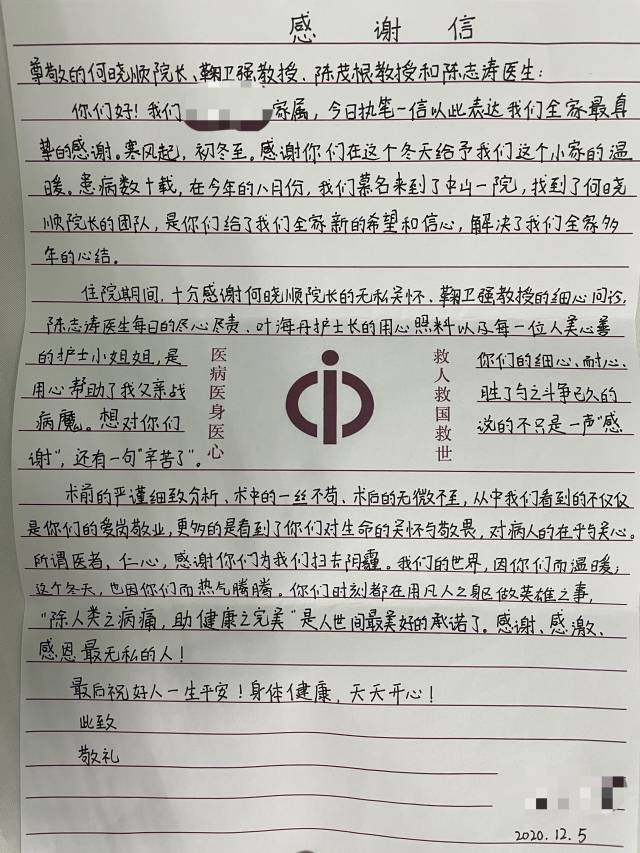 感谢信
尊敬的何晓顺院长、鞠卫强教授、陈茂根教授和陈志涛医生：
你们好！我们 家属，今日执笔一信以此表达我们全家最真
挚的感谢。寒风起，初冬至。感谢你们在这个冬天给予我们这个小家的温
暖。患病数十载，在今年的八月份，我们慕名来到了中山一院，找到了何晓
顺院长的团队，是你们给了我们全家新的希望和信心，解决了我们全家多
年的心结。
住院期间，十分感谢何晓顺院长的无私关怀、鞠卫强教授的细心问诊、
陈志涛医生每日的尽心尽责、叶海丹护士长的用心照料以及每一位人美心善
的护士小姐姐，是 你们的细心、耐心、
用心帮助了我父亲战 胜了与之斗争已久的
病魔。想对你们 说的不只是一声“感
谢”，还有一句“辛苦了”。
医病医身医心
救人救国救世
术前的严谨细致分析、术中的一丝不苟、术后的无微不至，从中我们看到的不仅仅
是你们的爱岗敬业，更多的是看到了你们对生命的关怀与敬畏，对病人的在乎与关心。
所谓医者，仁心，感谢你们为我们扫去阴霾。我们的世界，因你们而温暖；
这个冬天，也因你们而热气腾腾。你们时刻都在用凡人之躯做英雄之事，
“除人类之病痛，助健康之完美”是人世间最美好的承诺了。感谢、感激、
感恩最无私的人！
最后祝好人一生平安！身体健康，天天开心！
此致
敬礼
2020.12.5